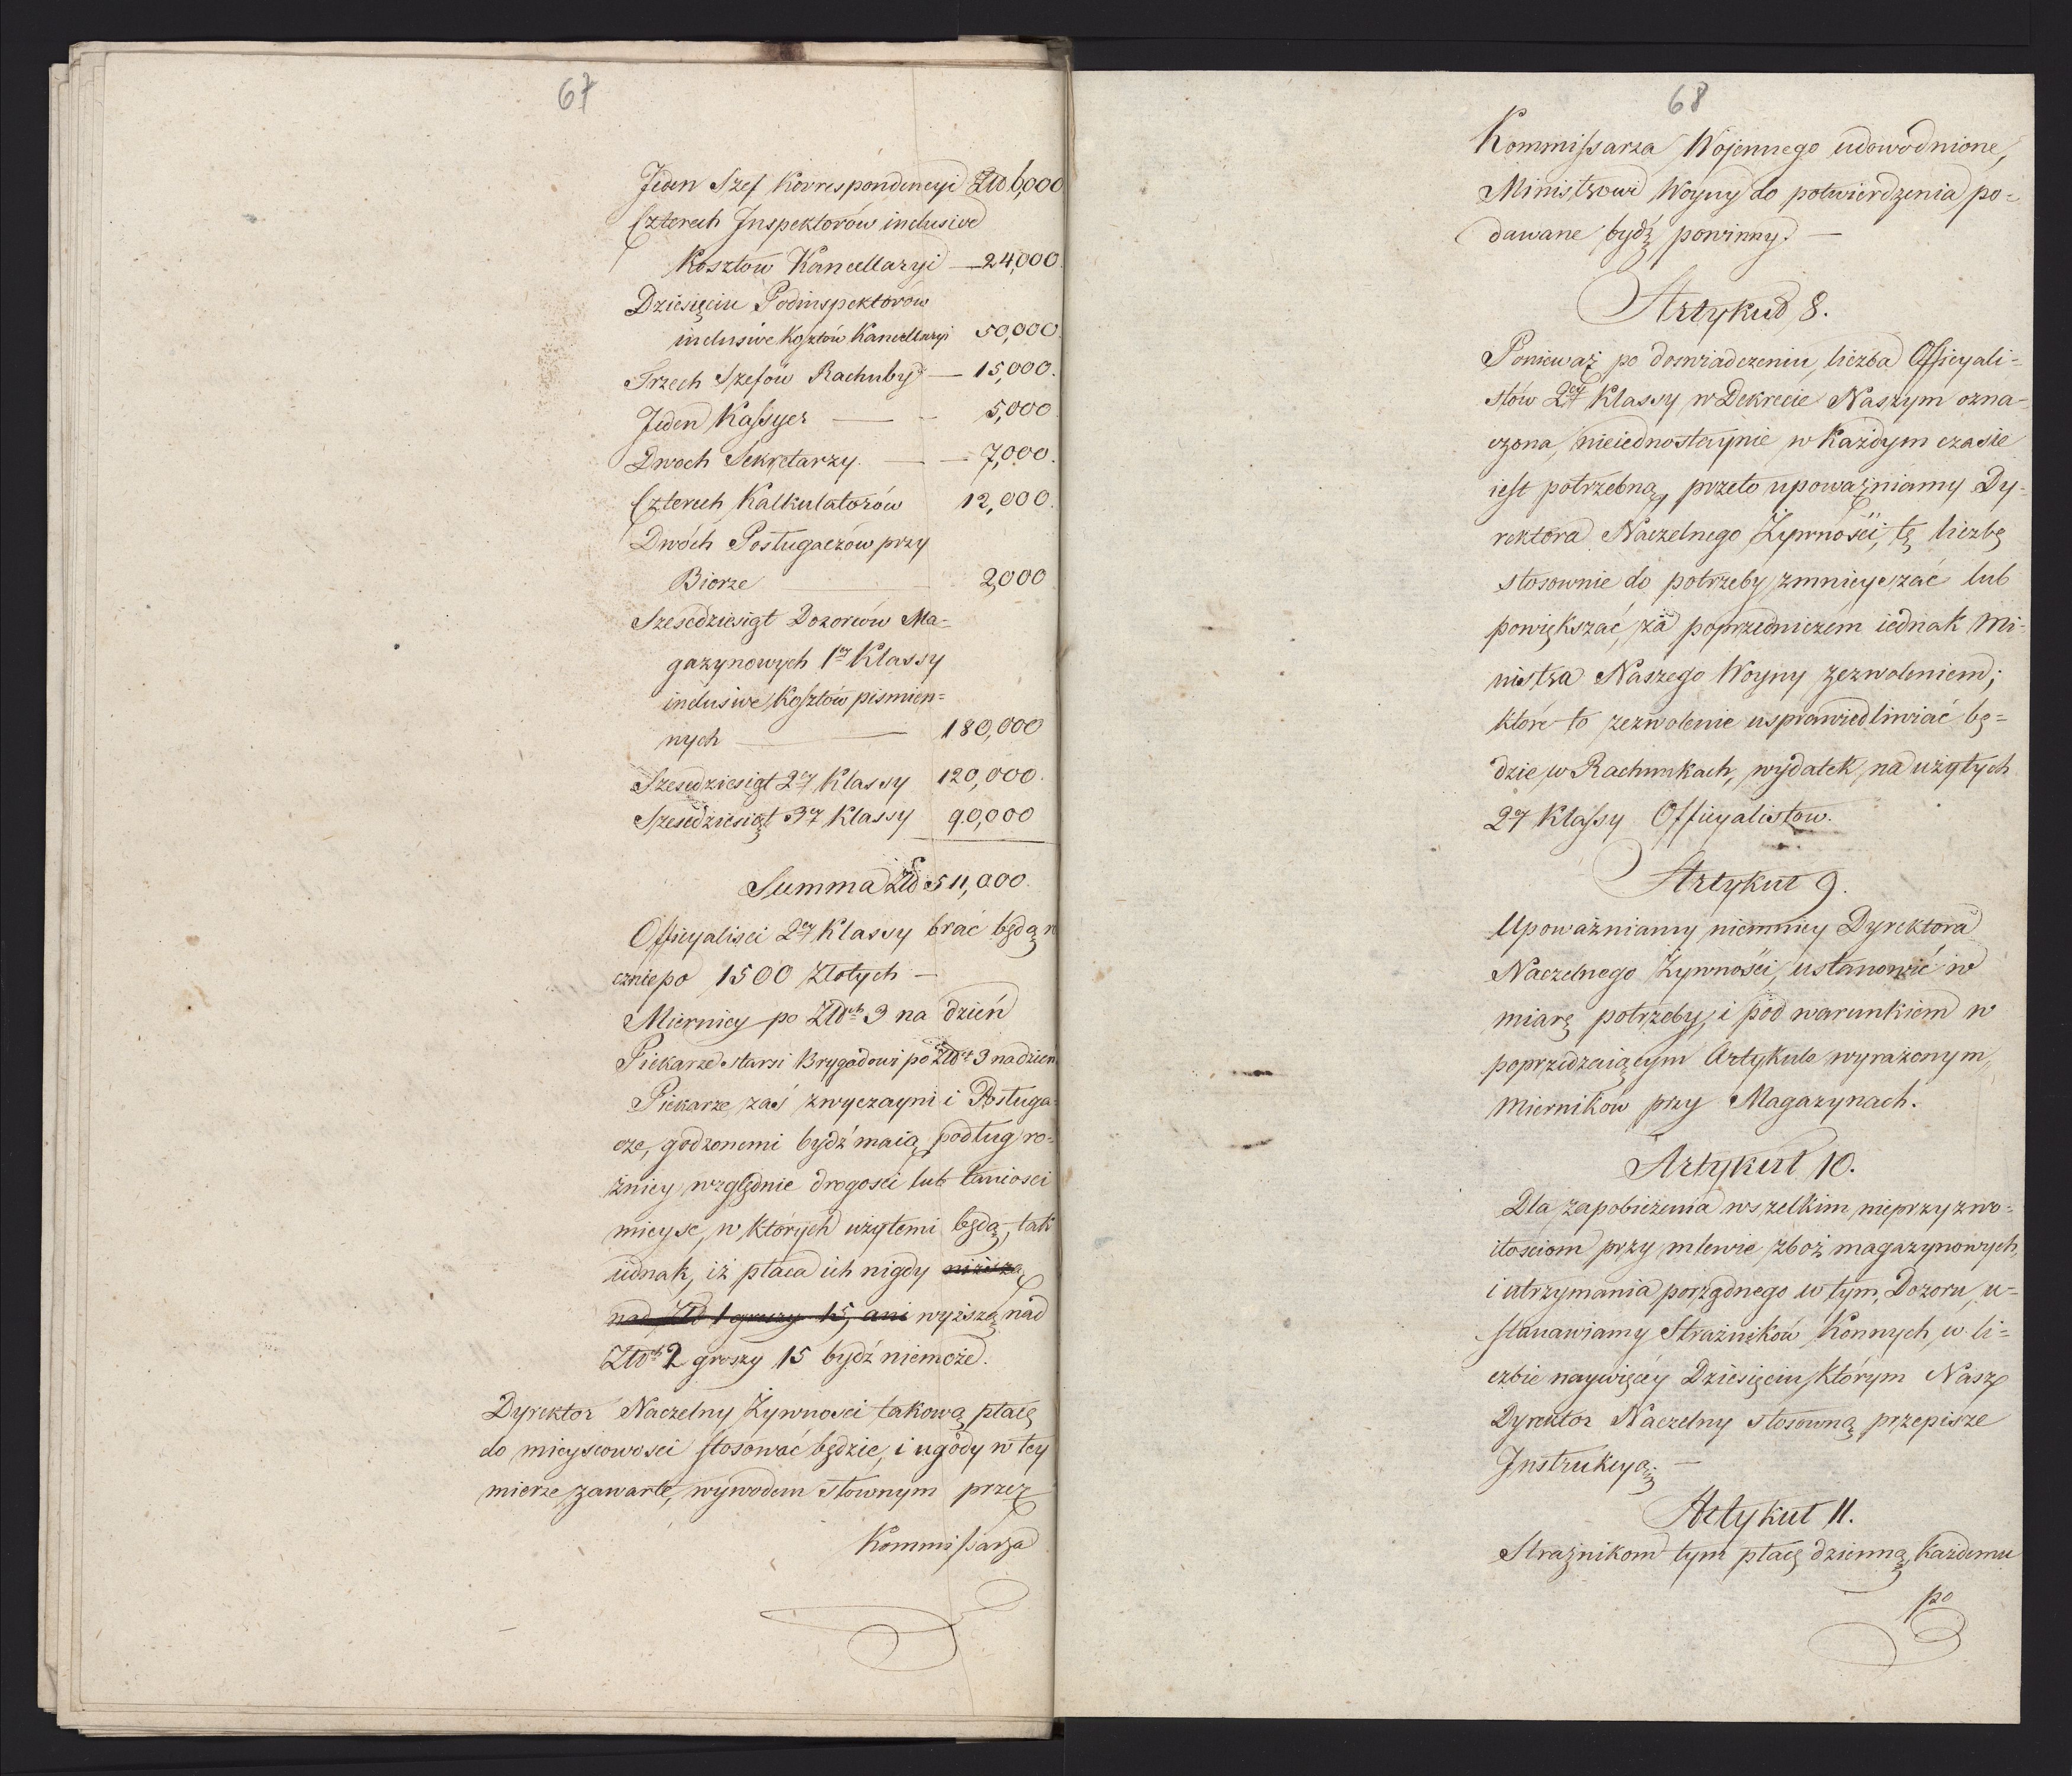 67
Jeden Szef Korrespondencyi Złł 6,000
Czterech Inspektorów inclusive
Kosztow Kancellaryi — 24,000.
Dziesięciu Podinspektorów
inclusive Kosztów Kancellaryi 50,000
Trzech Szefów Rachuby — 15,000.
Jeden Kassyer — — 5,000
Dwoch Sekretarzy. — — 7,000.
Czterech Kalkulatorów 12,000.
Dwóch Posługaczów przy
Biorze 2,000
Sześćdziesiąt Dozorców Ma-
gazynowych 1ey Klassy
inclusive Kosztów pismien=
nych — — 180,000
Sześćdziesiąt 2ey Klassy 120,000.
Sześćdziesiąt 3ey Klassy 90,000
Summa Złł 511,000.
Officyalisci 2ey Klassy brać będą r
cznie po 1500 Złotych —
Miernicy po Złłch 3 na dzień
Piekarze starsi Brygadowi po Złłch 3 na dzien
Piekarze zaś zwyczayni i Posługa-
cze, godzonemi bydź maią podług ro-
żnicy względnie drogosci lub taniosci
mieysc, w których użytemi będą, tak
iednak, iż płaca ich nigdy niższa
nad Złł 1 groszy 15, ani wyższą nad
Złłch 2 groszy 15 bydź niemoże.
Dyrektor Naczelny Żywnosci takową płacę
do mieyscowosci stosować będzie, i ugody w tey
mierze zawarte, wywodem słownym przez
Kommissarza
68
Kommissarza Wojennego udowodnione,
Ministrowi Woyny do potwierdzenia po=
dawane bydź powinny. —
Artykuł 8.
Ponieważ po doswiadczeniu, liczba Officyali=
stów 2ey Klassy w Dekrecie Naszym ozna-
czona, nieiednostaynie w każdym czasie
iest potrzebną, przeto upoważniamy Dy-
rektora Naczelnego Żywności, tę liczbę
stosownie do potrzeby zmnieyszać lub
powiększać, za poprzedniczem iednak Mi-
nistra Naszego Woyny zezwoleniem;
które to zezwolenie usprawiedliwiać bę=
dzie w Rachunkach, wydatek na użytych
2ey Klassy Officyalistow.
Artykuł 9.
Upoważniamy niemniey Dyrektora
Naczelnego Żywności, ustanowić w
miarę potrzeby, i pod warunkiem w
poprzedzaiącym Artykule wyrażonym,
Mierników przy Magazynach.
Artykuł 10.
Dla zapobieżenia wszelkim nieprzyzwo=
itosciom przy mlewie zboż magazynowych,
i utrzymania porządnego w tym, Dozoru, u=
stanawiamy Strażników Konnych, w li=
czbie naywięcey Dziesięciu, którym Nasz
Dyrektor Naczelny stosowną przepisze
Jnstrukcyą. —
Artykuł 11.
Strażnikom tym płacę dzienną każdemu
po